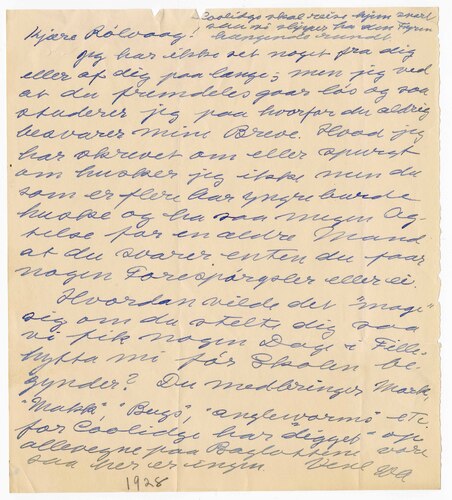 Coolidge skal reise hjem snart
saa vi slipper ha den Fyren
hængende rundt
Kjære Rölvaag!
Jeg har ikke set noget fra dig
eller af dig paa lange; men jeg ved
at du fremdeles gaar los og saa
studerer jeg paa hvorfor du aldrig
besvarer mine Breve. Hvad jeg
har skrevet om eller spurgt
om husker jeg ikke men du
som er flere Aar yngre burde
huske og ha saa megen Ag-
telse for en ældre Mand
at du svarer enten du faar
nogen Forespörgsler eller ei.
Hvordan vilde det "mage"
sig om du stelte dig saa
vi fik nogen Dage i Fille-
hytta mi för Skolen be-
gynder? Du medbringer Mark,
"Makk", "Bugs", "angleworms" etc.
for Coolidge har "digget" op
allevegne paa Baglotterne vore
saa her er ingen Venl
1928